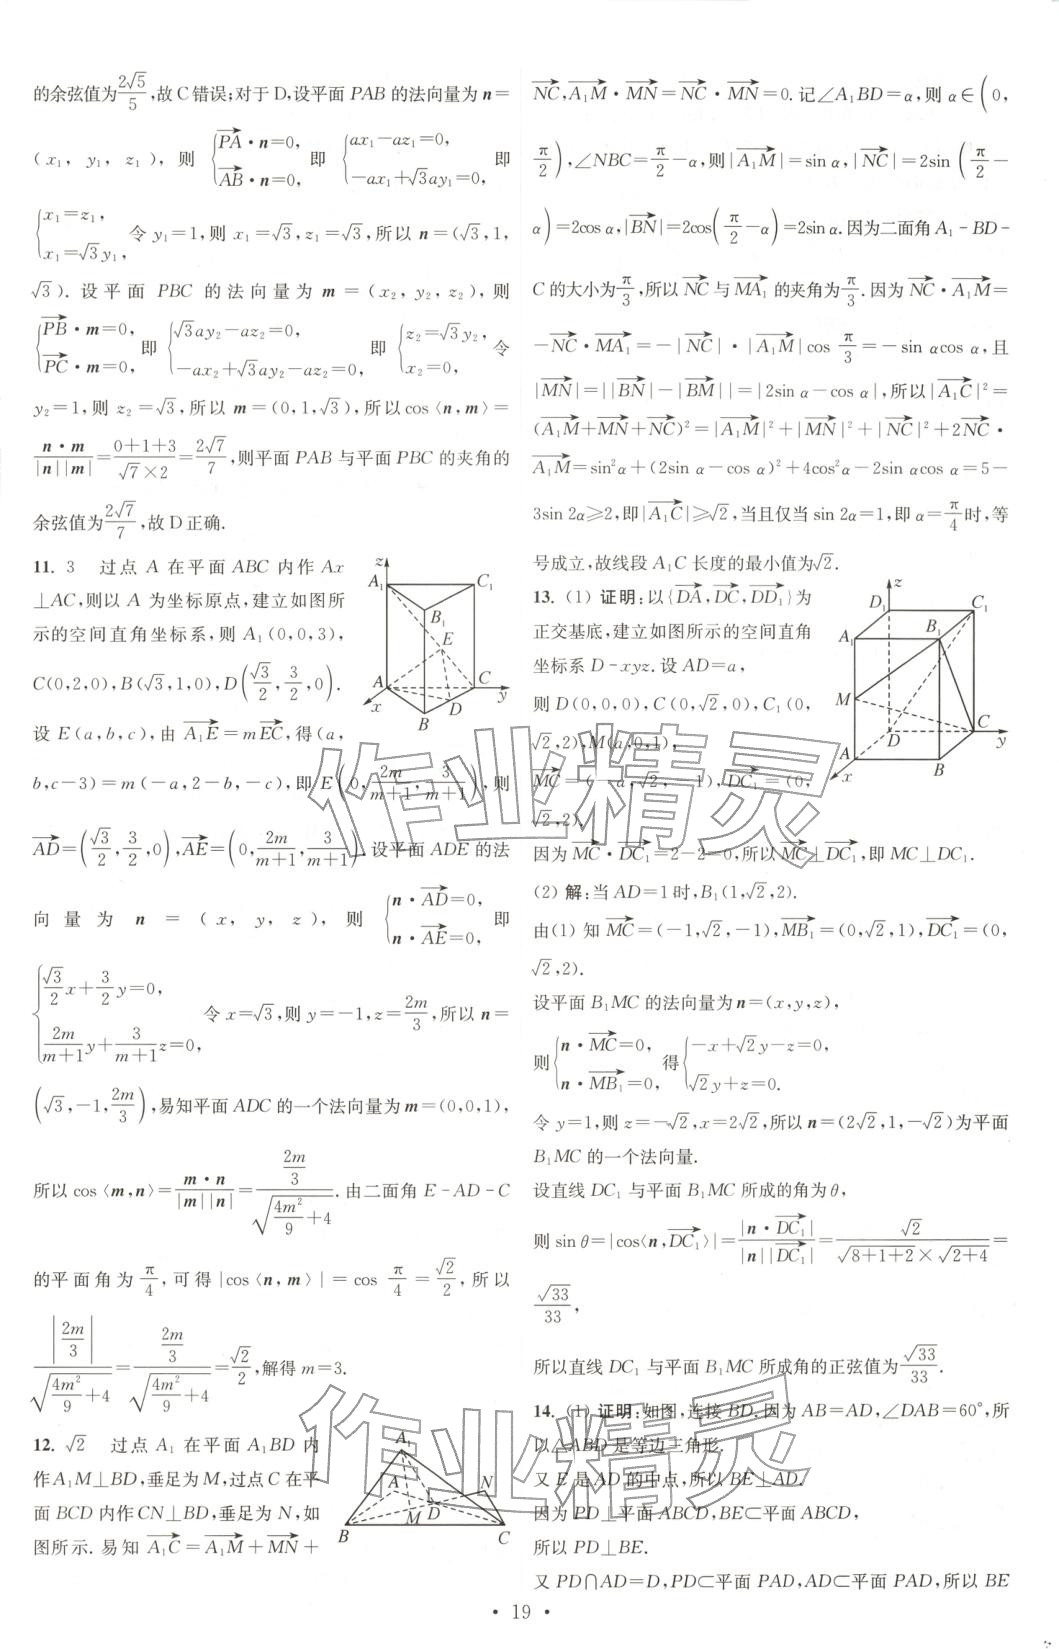 的余弦值为$\frac{2\sqrt{5}}{5}$,故C错误;对于D,设平面 PAB 的法向量为 n=
(x₁, y₁, z₁),则 $\begin{cases}\overrightarrow{PA}·n=0,\\ \overrightarrow{AB}·n=0,\end{cases}$ 即 $\begin{cases}ax_1-az_1=0,\\ -ax_1+\sqrt{3}ay_1=0,\end{cases}$ 即
$\begin{cases}x_1=z_1,\\ x_1=\sqrt{3}y_1,\end{cases}$ 令 y₁=1,则 x₁=√3,z₁=√3,所以 n=(√3,1,
√3). 设平面 PBC 的法向量为 m=(x₂, y₂, z₂),则
$\begin{cases}\overrightarrow{PB}·m=0,\\ \overrightarrow{PC}·m=0,\end{cases}$ 即 $\begin{cases}\sqrt{3}ay_2-az_2=0,\\ -ax_2+\sqrt{3}ay_2-az_2=0,\end{cases}$ 即 $\begin{cases}z_2=\sqrt{3}y_2,\\ x_2=0,\end{cases}$ 令
y₂=1,则 z₂=√3,所以 m=(0,1,√3),所以cos⟨n,m⟩=
$\frac{n·m}{|n||m|}=\frac{0+1+3}{\sqrt{7}×2}=\frac{2\sqrt{7}}{7}$,则平面 PAB 与平面 PBC 的夹角的
余弦值为$\frac{2\sqrt{7}}{7}$,故D正确.
11. 3 过点 A 在平面 ABC 内作 Ax
⊥AC,则以 A 为坐标原点,建立如图所
示的空间直角坐标系,则 A₁(0,0,3),
C(0,2,0),B(√3,1,0),D$\left(\frac{\sqrt{3}}{2},\frac{3}{2},0\right)$.
设 E(a,b,c),由 $\overrightarrow{A_1E}=m\overrightarrow{EC}$,得(a,
b,c-3)=m(-a,2-b,-c),即 E$\left(0,\frac{2m}{m+1},\frac{3}{m+1}\right)$,则
$\overrightarrow{AD}=\left(\frac{\sqrt{3}}{2},\frac{3}{2},0\right),\overrightarrow{AE}=\left(0,\frac{2m}{m+1},\frac{3}{m+1}\right)$. 设平面 ADE 的法
向量为 n=(x, y, z),则 $\begin{cases}n·\overrightarrow{AD}=0,\\ n·\overrightarrow{AE}=0,\end{cases}$ 即
$\begin{cases}\frac{\sqrt{3}}{2}x+\frac{3}{2}y=0,\\ \frac{2m}{m+1}y+\frac{3}{m+1}z=0,\end{cases}$ 令 x=√3,则 y=-1,z=$\frac{2m}{3}$,所以 n=
$\left(\sqrt{3},-1,\frac{2m}{3}\right)$,易知平面 ADC 的一个法向量为 m=(0,0,1),
所以 cos⟨m,n⟩=$\frac{m·n}{|m||n|}=\frac{\frac{2m}{3}}{\sqrt{\frac{4m^2}{9}+4}}$.由二面角 E-AD-C
的平面角为$\frac{π}{4}$,可得|cos⟨n,m⟩|=cos $\frac{π}{4}=\frac{\sqrt{2}}{2}$,所以
$\frac{\left|\frac{2m}{3}\right|}{\sqrt{\frac{4m^2}{9}+4}}=\frac{\frac{2m}{3}}{\sqrt{\frac{4m^2}{9}+4}}=\frac{\sqrt{2}}{2}$,解得 m=3.
12. √2 过点 A₁ 在平面 A₁BD 内
作A₁M⊥BD,垂足为M,过点 C 在平
面 BCD 内作 CN⊥BD,垂足为 N,如
图所示. 易知 $\overrightarrow{A_1C}=\overrightarrow{A_1M}+\overrightarrow{MN}+$
$\overrightarrow{NC},\overrightarrow{A_1M}·\overrightarrow{MN}=\overrightarrow{NC}·\overrightarrow{MN}=0$. 记∠A₁BD=α,则 α∈$\left(0,\right.$
$\left.\frac{π}{2}\right)$,∠NBC=$\frac{π}{2}$-α,则$|\overrightarrow{A_1M}|$=sin α,$|\overrightarrow{NC}|$=2sin$\left(\frac{π}{2}-\right.$
$\left.α\right)$=2cos α,$|\overrightarrow{BN}|$=2cos$\left(\frac{π}{2}-α\right)$=2sin α.因为二面角 A₁-BD-
C 的大小为$\frac{π}{3}$,所以 $\overrightarrow{NC}$ 与 $\overrightarrow{MA_1}$ 的夹角为$\frac{π}{3}$.因为 $\overrightarrow{NC}·\overrightarrow{A_1M}=$
$-\overrightarrow{NC}·\overrightarrow{MA_1}=-|\overrightarrow{NC}|·|\overrightarrow{A_1M}|$cos $\frac{π}{3}$=-sin αcos α,且
$|\overrightarrow{MN}|=||\overrightarrow{BN}|-|\overrightarrow{BM}||$=|2sin α-cos α|,所以$|\overrightarrow{A_1C}|^2=$
$(\overrightarrow{A_1M}+\overrightarrow{MN}+\overrightarrow{NC})^2=|\overrightarrow{A_1M}|^2+|\overrightarrow{MN}|^2+|\overrightarrow{NC}|^2+2\overrightarrow{NC}·$
$\overrightarrow{A_1M}$=sin²α+(2sin α-cos α)²+4cos²α-2sin αcos α=5-
3sin 2α≥2,即$|\overrightarrow{A_1C}|$≥√2,当且仅当 sin 2α=1,即 α=$\frac{π}{4}$时,等
号成立,故线段 A₁C 长度的最小值为√2.
13. (1) 证明:以{$\overrightarrow{DA},\overrightarrow{DC},\overrightarrow{DD_1}$}为
正交基底,建立如图所示的空间直角
坐标系 D-xyz.设 AD=a,
则 D(0,0,0),C(0,√2,0),C₁(0,
√2,2),M(a,0,1),
$\overrightarrow{MC}$=(-a,√2,-1),$\overrightarrow{DC_1}$=(0,
√2,2),
因为 $\overrightarrow{MC}·\overrightarrow{DC_1}$=2-2=0,所以 $\overrightarrow{MC}⊥\overrightarrow{DC_1}$,即 MC⊥DC₁.
(2) 解:当 AD=1时,B₁(1,√2,2).
由(1) 知 $\overrightarrow{MC}$=(-1,√2,-1),$\overrightarrow{MB_1}$=(0,√2,1),$\overrightarrow{DC_1}$=(0,
√2,2).
设平面 B₁MC 的法向量为 n=(x,y,z),
则$\begin{cases}n·\overrightarrow{MC}=0,\\ n·\overrightarrow{MB_1}=0,\end{cases}$ 得$\begin{cases}-x+\sqrt{2}y-z=0,\\ \sqrt{2}y+z=0.\end{cases}$
令 y=1,则 z=-√2,x=2√2,所以 n=(2√2,1,-√2)为平面
B₁MC 的一个法向量.
设直线 DC₁ 与平面 B₁MC 所成的角为θ,
则 sin θ=|cos⟨n,$\overrightarrow{DC_1}$⟩|=$\frac{|n·\overrightarrow{DC_1}|}{|n||\overrightarrow{DC_1}|}=\frac{\sqrt{2}}{\sqrt{8+1+2}×\sqrt{2+4}}=$
$\frac{\sqrt{33}}{33}$,
所以直线 DC₁ 与平面 B₁MC 所成角的正弦值为$\frac{\sqrt{33}}{33}$.
14. (1) 证明:如图,连接 BD.因为 AB=AD,∠DAB=60°,所
以△ABD 是等边三角形.
又 E 是 AD 的中点,所以 BE⊥AD.
因为 PD⊥平面 ABCD,BE⊂平面 ABCD,
所以 PD⊥BE.
又 PD∩AD=D,PD⊂平面 PAD,AD⊂平面 PAD,所以 BE
• 19 •
z
A₁
C₁
B₁
E
A
C
x
D
y
B
A₁
A
N
D
M
B
C
z
D₁
C₁
A₁
B₁
M
C
D
y
A
B
x
作业精灵
作业精灵